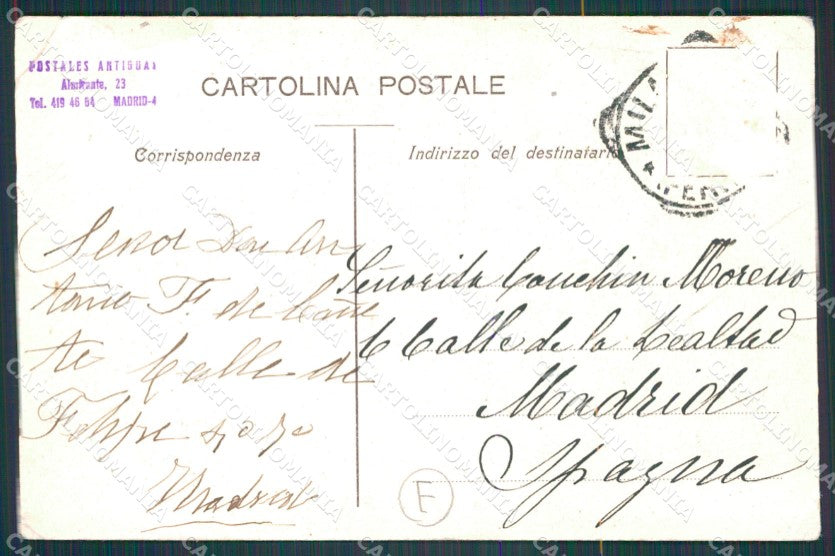 POSTALES ANTIGUAS
Almirante, 23
Tel. 419 46 64 MADRID-4
CARTOLINA POSTALE
Corrispondenza
Indirizzo del destinatario
MILA
Senor Don An
tonio F. de Cañe
te Calle de
Felipe 4o
Madrid
Señorita Conchin Moreno
6 Calle de la Lealtad
Madrid
Spagna
F
CARTOLINOMANIA